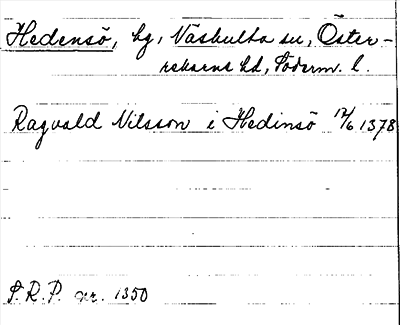 Hedensö, hg, Näshulta sn, Öster-
rekarne hd, Söderm. l.
Ragvald Nilsson i Hedinsö 12/6 1378
S.R.P. nr. 1350